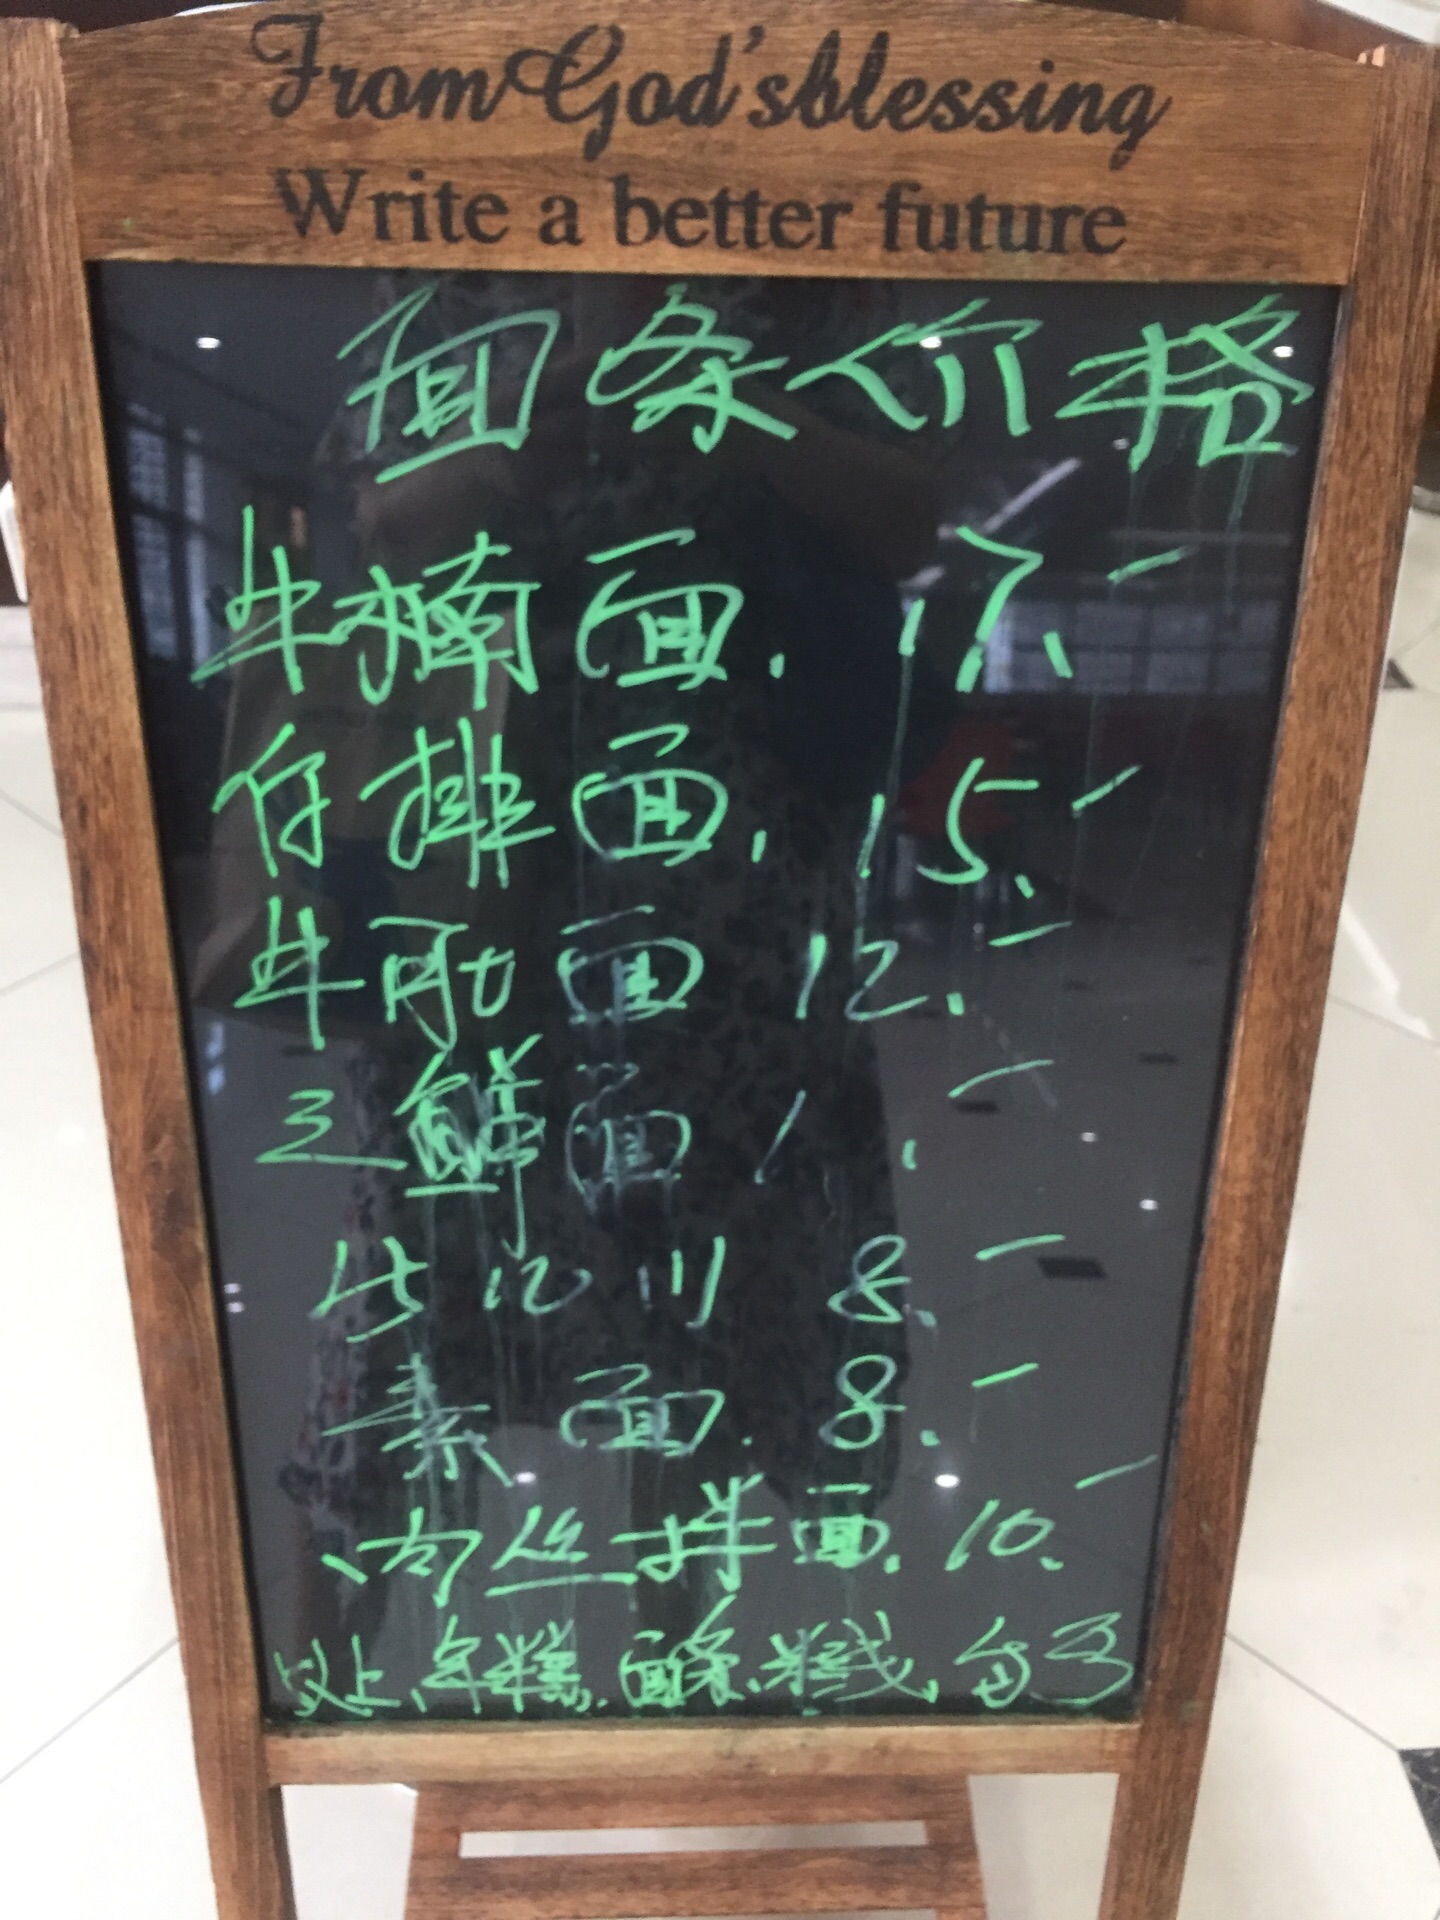 From God'sblessing
Write a better future
面条价格
牛楠面. 17.-
仔排面. 15.-
牛肚面 12.-
三鲜面 1 .-
片儿川 8.-
素面. 8.-
肉丝拌面. 10.-
以上年糕.面条.米线.